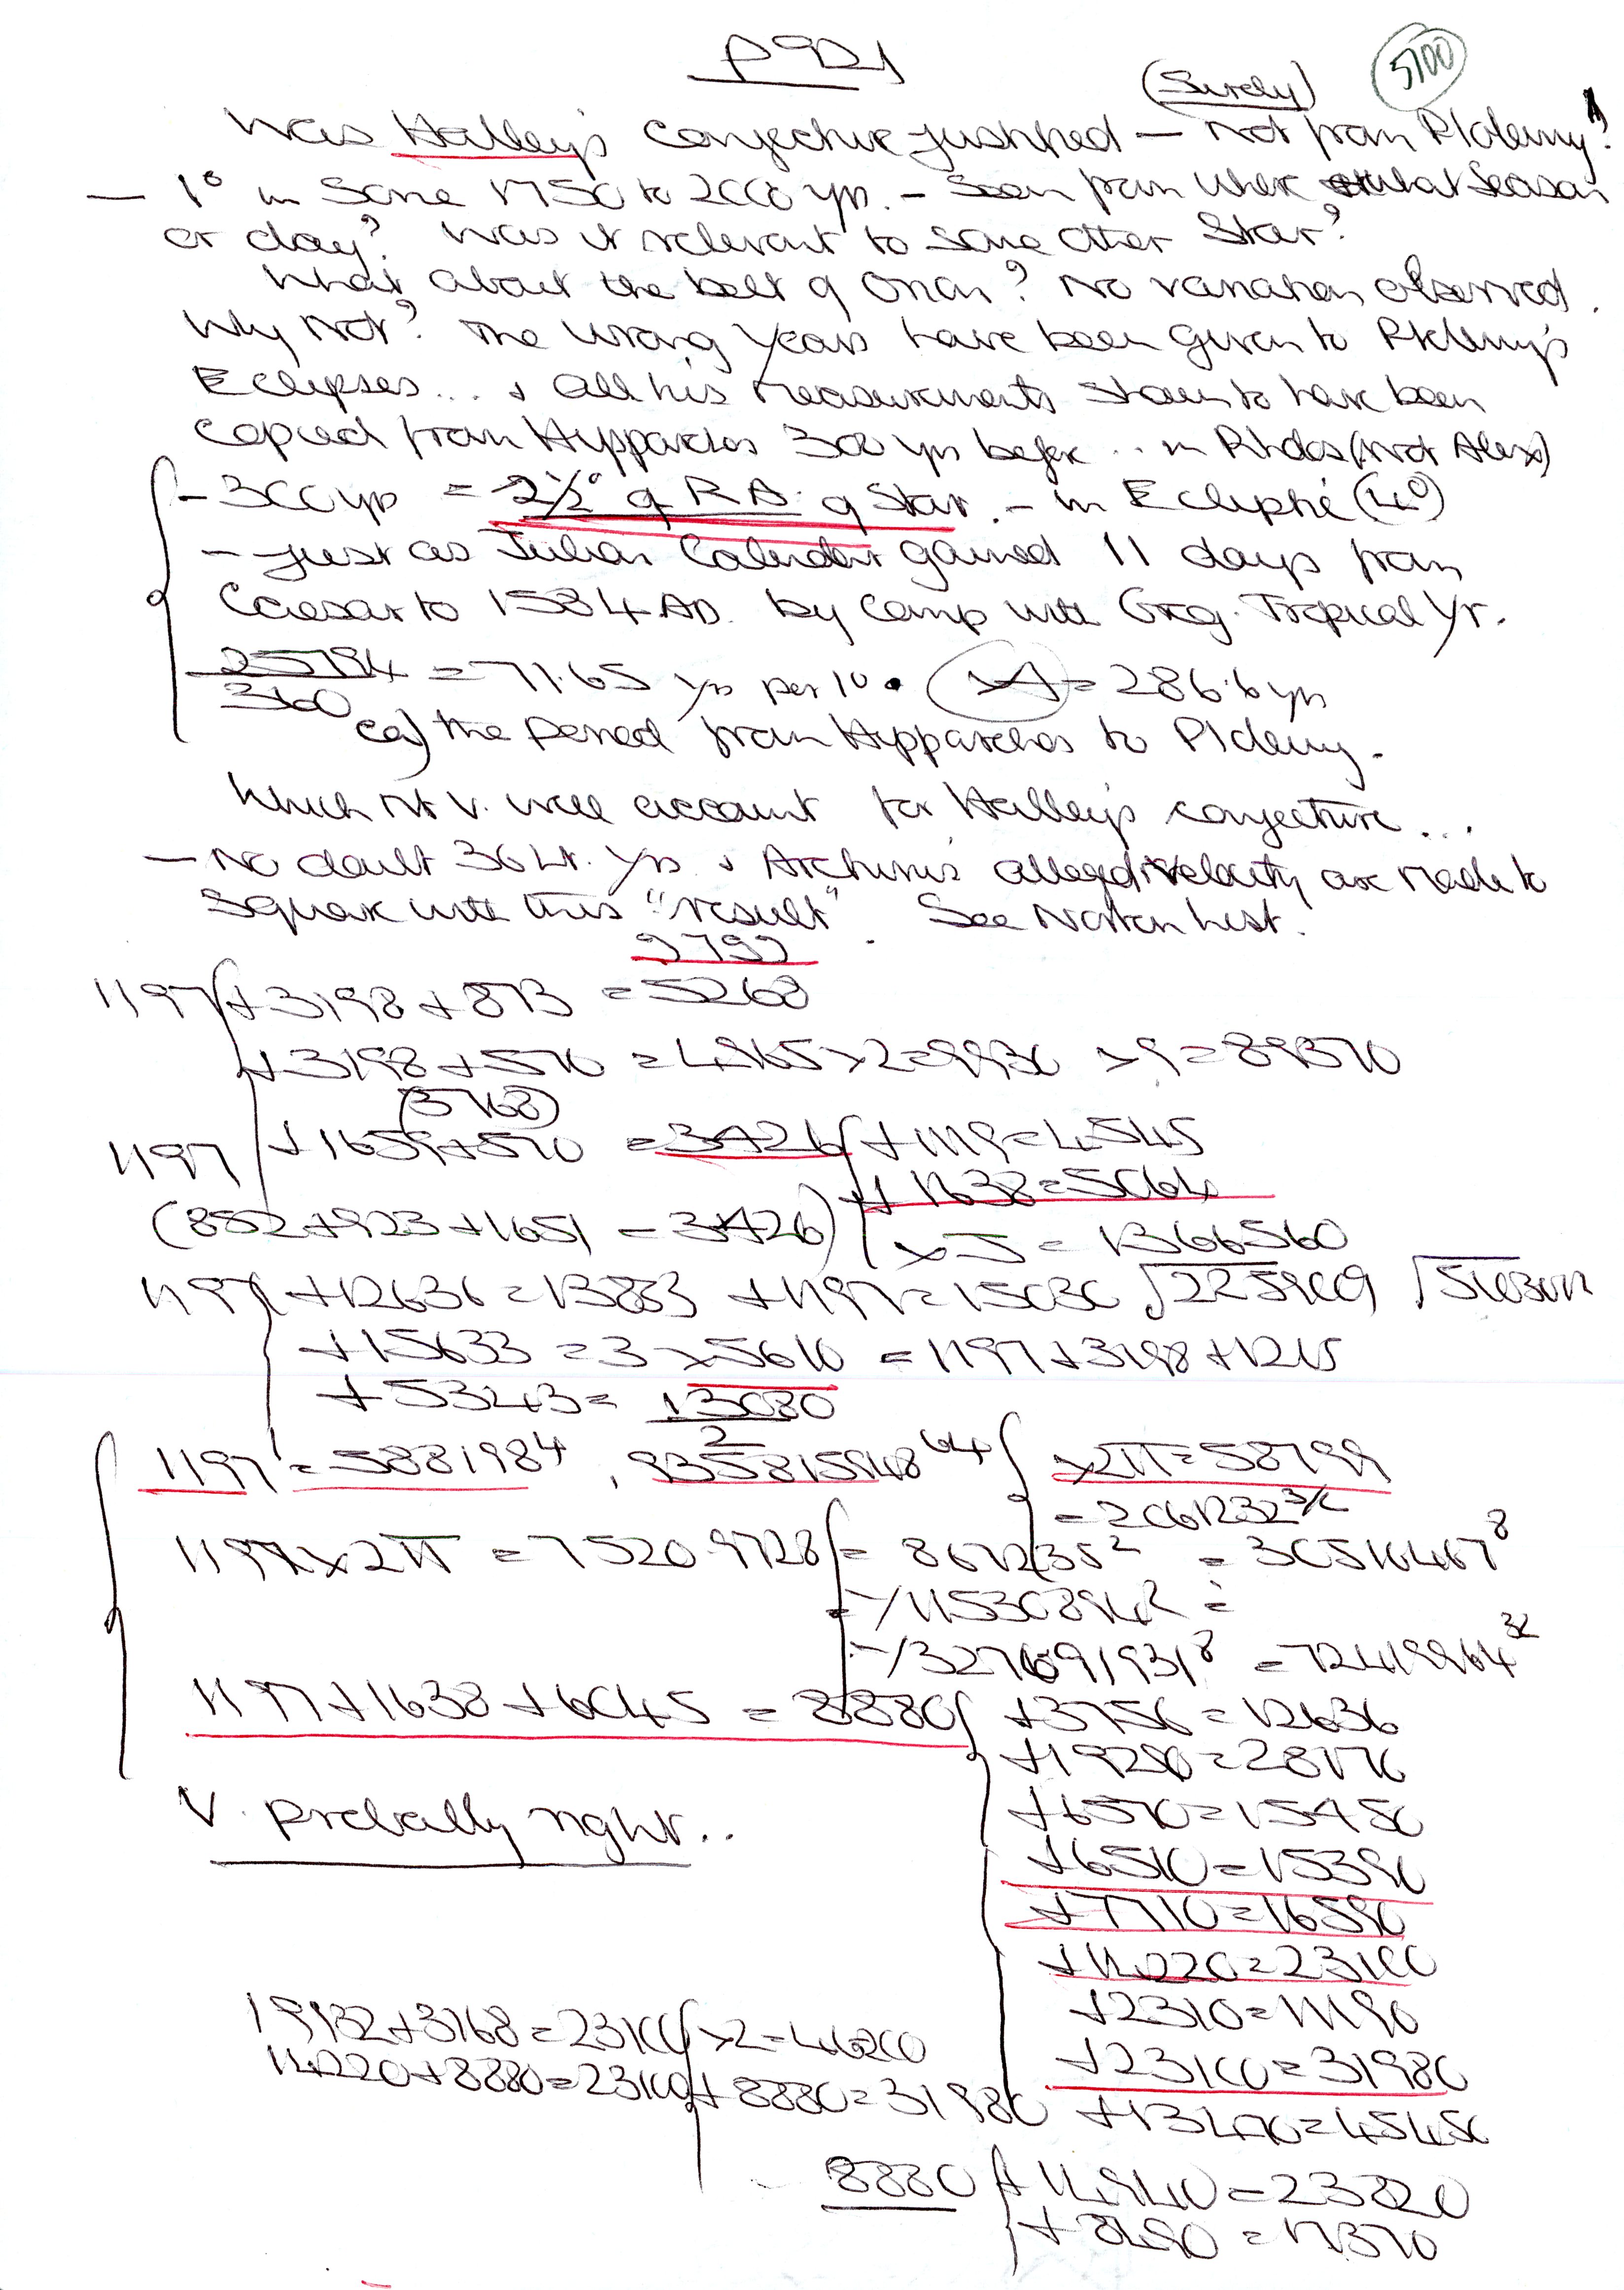 P921
(Surely)
5100
Was Halley's conjecture justified — not from Ptolemy?
— 1° in some 1750 to 2000 yrs. — Seen from where what Season
or day? Was it relevant to some other Star?
What about the belt of Orion? No variation observed.
Why not? The wrong years have been given to Ptolemy's
Eclipses... + all his measurements shown to have been
copied from Hipparchos 300 yrs before .. in Rhdos (not Alex)
- 300 yrs = 2½° of RA. of Star. - in Ecliptic (4°)
- just as Julian Calendar gained 11 days from
Caesar to 1584 AD. by comp with Greg. Tropical Yr.
25794/360 = 71.65 yrs per 1° • (x4) = 286.6 yrs
(ca) the Period from Hipparchos to Ptolemy.
Which Nt V. well account for Halley's conjecture...
— No doubt 36 Lt. Yrs + Arcturus' alleged velocity are made to
square with this "result". See Norton list.
9799
1197 + 3198 + 873 = 5268
+ 3198 + 570 = 4965 x 2 = 9930 x 9 = 89370
(3768)
1197 + 1659 + 570 = 3426 + 1119 = 4545
+ 1638 = 5064
(852 + 923 + 1651 = 3426) x 5 = 1366560
1197 + 12636 = 13833 + 1197 = 15030 √225909
+ 15633 = 3 x 5610 = 1197 + 3198 + 1215
+ 5343 = 13080/2
1197 = 588198⁴, 935815948⁶⁴ x 2π = 58799
= 2061232^3/2
1197 x 2π = 7520.9728 = 8672135² = 30516467⁸
= /115308942 =
= /3276091931⁸ = 72419964³²
1197 + 1638 + 6045 = 8880 + 3756 = 12636
+ 19290 = 28170
+ 6570 = 15450
+ 6510 = 15390
V. probably right..
+ 7710 = 16590
+ 14220 = 23100
+ 2310 = 11190
19932 + 3168 = 23100 x 2 = 46200
+ 23100 = 31980
14220 + 8880 = 23100 + 8880 = 31980
+ 36570 = 45450
8880 + 14940 = 23820
+ 8490 = 17370